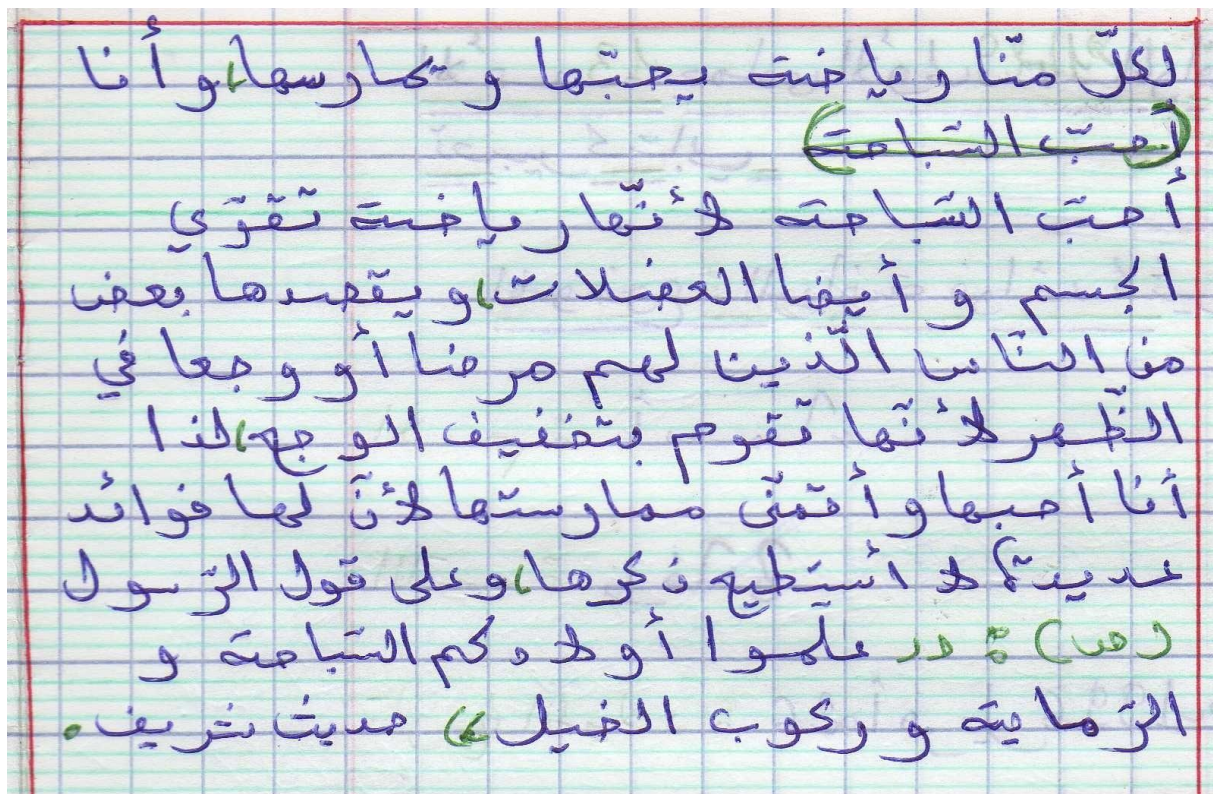 لكلّ منّا رياضة يحبّها ويمارسها، وأنا
(أحبّ السّباحة)
أحبّ السّباحة لأنّها رياضة تقوّي
الجسم و أيضا العضلات، ويقصدها بعض
من النّاس الّذين لهم مرضا أو وجعا في
الظّهر لأنّها تقوم بتخفيف الوجع، لذا
أنا أحبها وأتمنّى ممارستها لأنّ لها فوائد
عديدة، لا أستطيع ذكرها، وعلى قول الرّسول
(ص) : « علّموا أولادكم السّباحة و
الرّماية وركوب الخيل » حديث شريف.